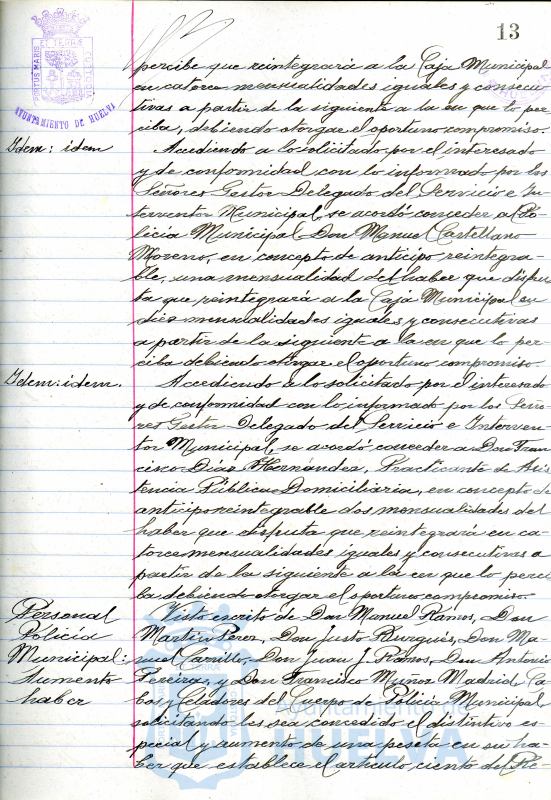 13
PORTUS MARIS ET TERRAE CUSTODIA
AYUNTAMIENTO DE HUELVA
percibe que reintegrará a la Caja Municipal
en catorce mensualidades iguales y consecu-
tivas a partir de la siguiente a la en que lo per-
ciba, debiendo otorgar el oportuno compromiso.
Idem: idem
Accediendo a lo solicitado por el interesado
y de conformidad con lo informado por los
Señores Gestor Delegado del Servicio e In-
terventor Municipal, se acordó conceder al Po-
licia Municipal Don Manuel Castellano
Moreno, en concepto de anticipo reintegra-
ble, una mensualidad del haber que disfru-
ta que reintegrará a la Caja Municipal en
diez mensualidades iguales y consecutivas
a partir de la siguiente a la en que lo per-
ciba debiendo otorgar el oportuno compromiso.
Idem: idem.
Accediendo a lo solicitado por el interesado
y de conformidad con lo informado por los Seño-
res Gestor Delegado del Servicio e Interven-
tor Municipal, se acordó conceder a Don Fran-
cisco Díaz Hernández, Practicante de Asis-
tencia Pública Domiciliaria, en concepto de
anticipo reintegrable dos mensualidades del
haber que disfruta que reintegrará en ca-
torce mensualidades iguales y consecutivas a
partir de la siguiente a la en que lo perci-
ba debiendo otorgar el oportuno compromiso.
Personal
Policia
Municipal:
Aumento
haber
Visto escrito de Don Manuel Ramos, Don
Martín Perez, Don Justo Burgués, Don Ma-
nuel Carrillo, Don Juan J. Ramos, Don Antonio
Pereira, y Don Francisco Muñoz Madrid Ca-
bos y Celadores del Cuerpo de Policia Municipal
solicitando les sea concedido el distintivo es-
pecial y aumento de una peseta en su ha-
ber que establece el artículo ciento del Re-
Ayuntamiento de
HUELVA